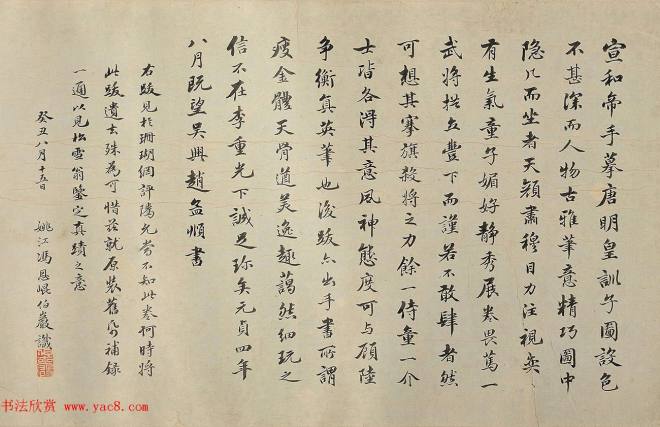 宣和帝手摹唐明皇訓子圖設色
不甚深而人物古雅筆意精巧圖中
隱几而坐者天顏肅穆目力注視奕
有生氣童子媚好靜秀展卷畏篤一
武將拱立豐下而謹若不敢肆者然
可想其搴旗殺將之力餘一侍童一介
士皆各淂其意風神態度可与顧陸
争衡真英筆也後跋六出手書所謂
瘦金體天骨遒美逸趣藹然細玩之
信不在李重光下誠足珍矣元貞四年
八月既望吳興趙孟頫書
右跋見於珊瑚網評隲允當不知此卷何時將
此跋遺去殊為可惜茲就原裝舊帋補錄
一通以見松雪翁鑒定真蹟之意
癸丑八月十五日
姚江馮恩崐伯巖識
书法欣赏 www.yac8.com